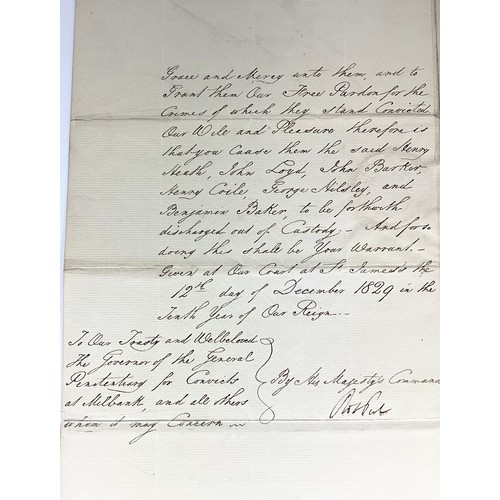 Grace and Mercy unto them, and to
Grant them Our Free Pardon for the
Crimes of which they stand Convicted
Our Will and Pleasure therefore is
that you cause them the said Henry
Heath, John Loyd, John Barker,
Henry Coile, George Nilsley, and
Benjamin Baker, to be forthwith
discharged out of Custody:— And for so
doing this shall be Your Warrant.—
Given at Our Court at St. James's the
12th day of December 1829 in the
Tenth Year of Our Reign.—
To Our Trusty and Welbeloved
The Governor of the General
Penitentiary for Convicts
at Milbank, and all others
whom it may Concern —
By His Majesty's Command
Rob Peel